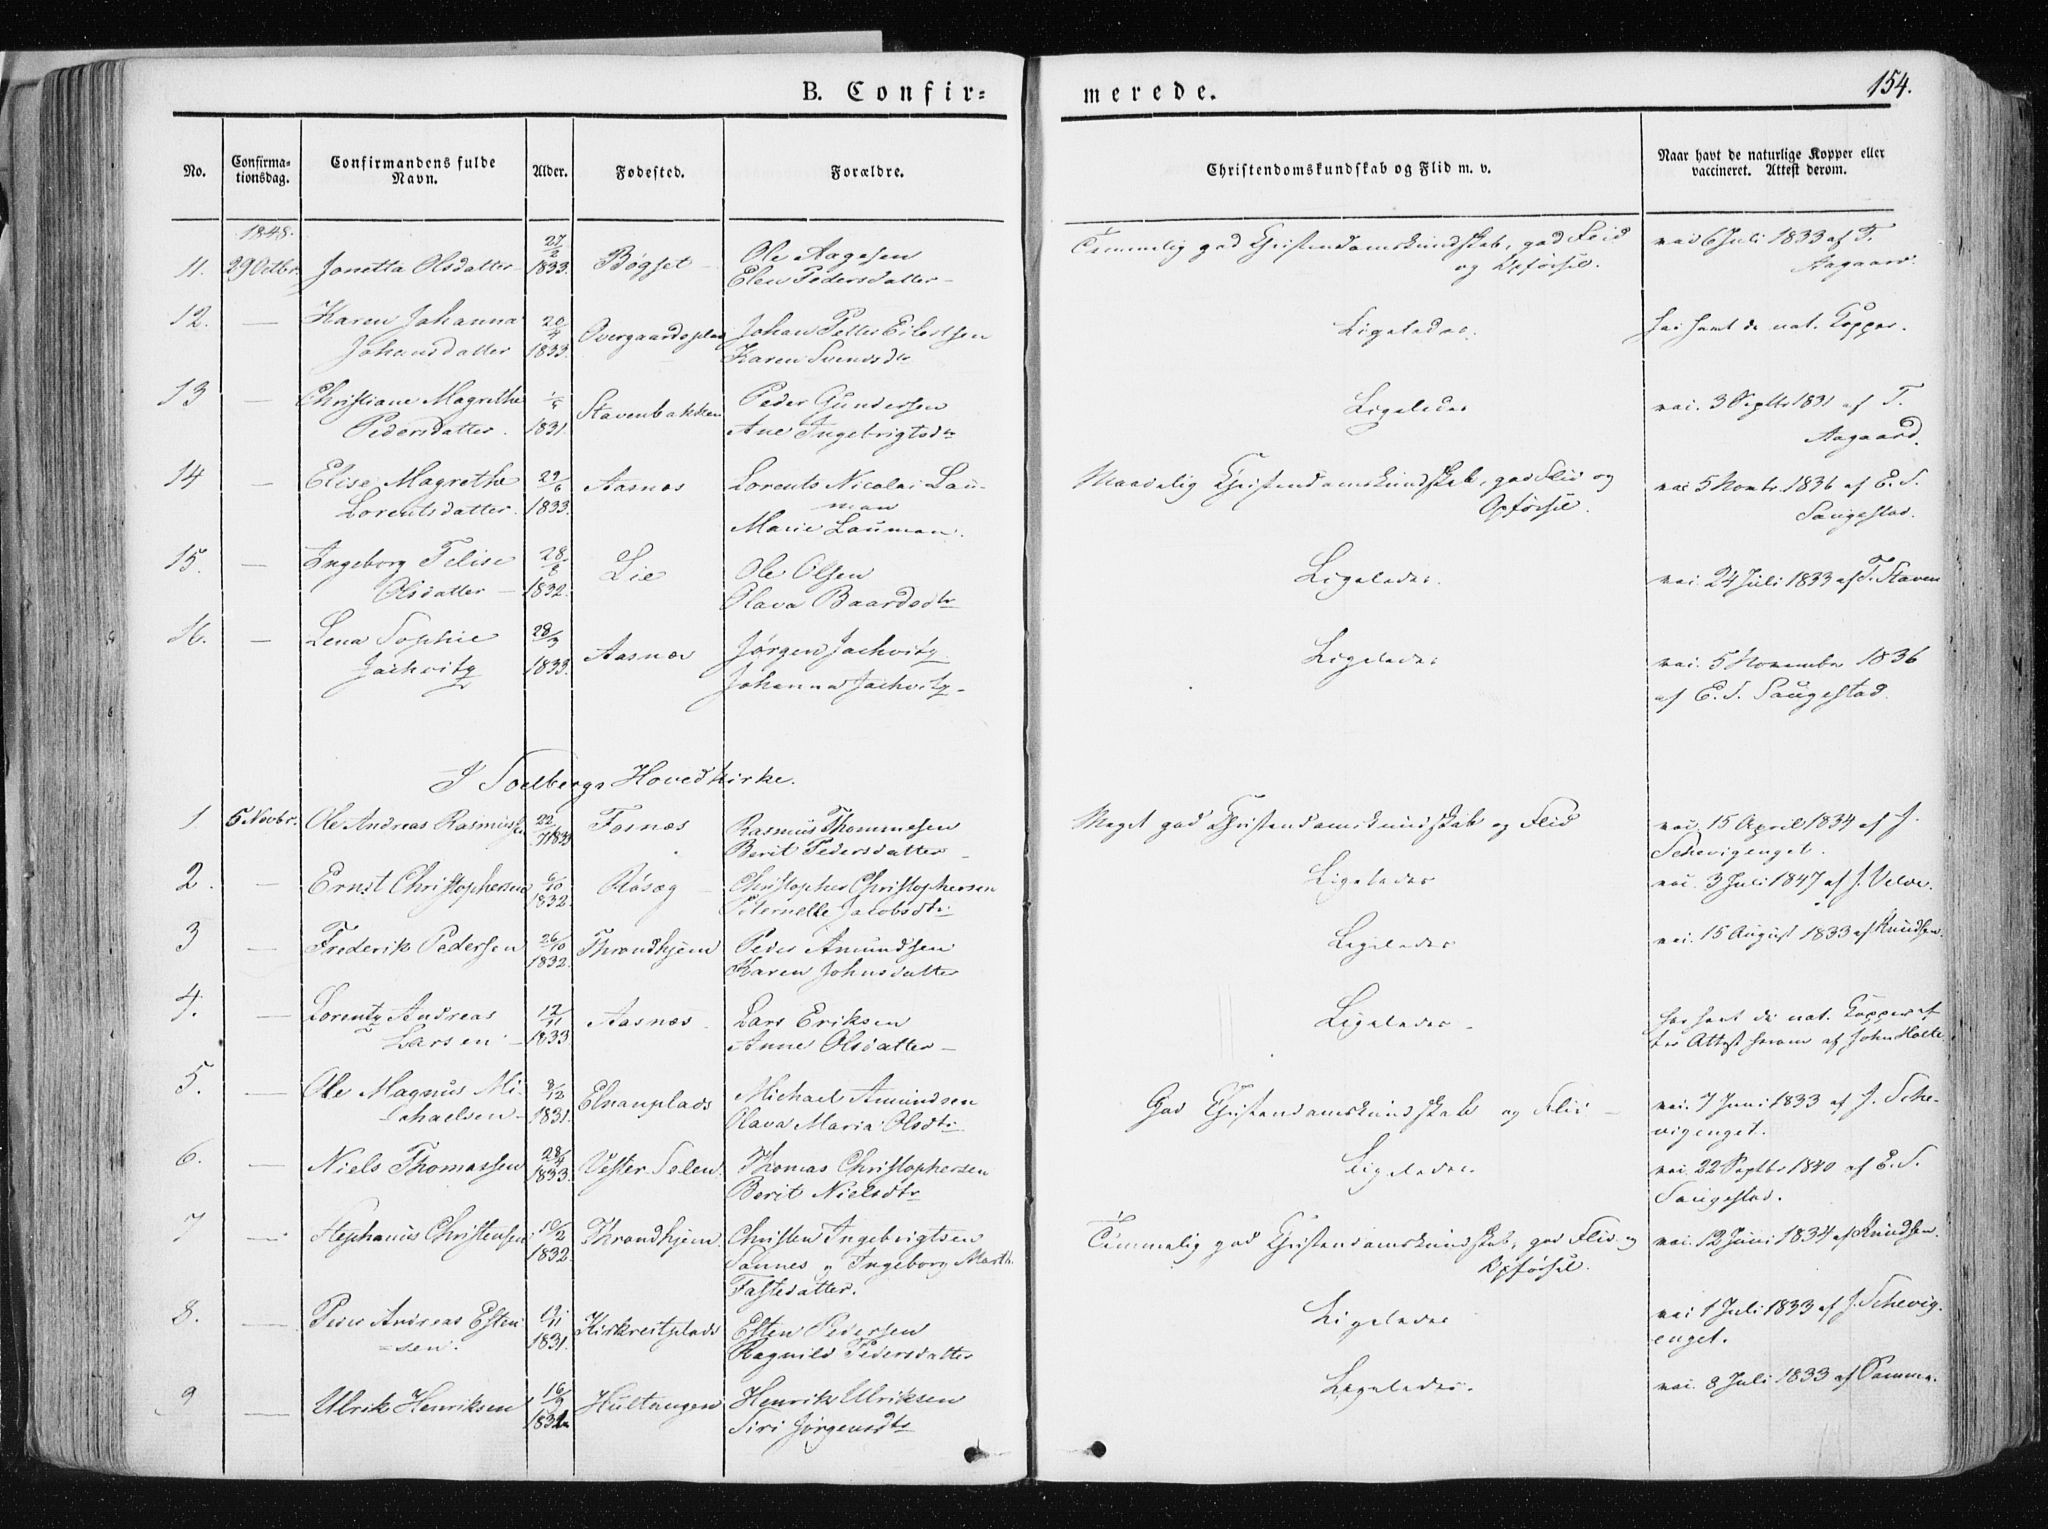 B. Confir=
merede.
154.
No.
Confirma-
tionsdag.
Confirmandens fulde
Navn.
Alder.
Fødested.
Forældre.
Christendomskundskab og Flid m. v.
Naar havt de naturlige Kopper eller
vaccineret. Attest derom.
1848.
11. 29 Octbr. Jonetta Olsdatter 27/2 1833. Bøgset Ole Aagesen
Elen Pedersdatter
Temmelig god Christendomskundskab, god Flid
og Opførsel.
vac 6 Juli 1833 af T.
Aagaard.
12. — Karen Johanna
Johansdatter 20/4 1833. Overgaardsplads Johan Petter Eilertsen
Karen Svendsdtr
Ligeledes.
har havt de nat. Kopper.
13 — Christiane Magrethe
Pedersdatter. 1831. Stavenbakken Peder Gundersen
Ane Ingebrigtsdtr
Ligeledes
vac. 3 Septbr 1831 af T.
Aagaard.
14 — Elise Magrethe
Lorentsdatter. 29/6 1833. Aasnes Lorents Nicolai Lau-
man
Marie Lauman.
Maadelig Christendomskundskab, god Flid og
Opførsel.
vac 5 Novbr. 1836 af E. S.
Saugestad.
15. — Ingeborg Felise
Olsdatter — 28/8 1832. Lie Ole Olsen
Olava Baardsdtr
Ligeledes.
vac. 24 Juli 1833 af T. Staven
16. — Lena Sophie
Jachvitz 28/3 1833. Aasnes Jørgen Jachvitz
Johanna Jachvitz
Ligeledes
vac. 5 November 1836
af E. S. Saugestad.
I Soelbergs Hovedkirke.
1. 5 Novbr. Ole Andreas Rasmussen 22/7 1833 Fosnæs Rasmus Thommesen
Berit Pedersdatter
Meget god Christendomskundskab og Flid
vac. 15 April 1834 af J.
Schevigenget.
2. — Ernst Christophersen 6/10 1832. Røsæg Christopher Christophersen
Peternelle Jacobsdtr.
Ligeledes
vac. 3 Juli 1847 af J. Velde.
3 — Frederik Pedersen 26/10 1832. Throndhjem Peder Amundsen
Karen Johnsdatter
Ligeledes
vac. 15 August 1833 af Knudsen.
4. — Lorentz Andreas
Larsen — 12/11 1833 Aasnæs. Lars Eriksen
Anne Olsdatter —
Ligeledes
har havt de nat. Kopper ef-
ter Attest herom af John Holte.
5. — Ole Magnus Mi-
chaelsen 8/12 1831. Elvanplads Michael Amundsen
Olava Maria Olsdtr.
God Christendomskundskab og Flid —
vac. 7 Juni 1833 af J. Sche-
vigenget.
6. — Niels Thomassen 28/4 1833. Vester Selen. Thomas Christophersen
Berit Nielsdtr
Ligeledes
vac. 22 Septbr 1840 af E. S.
Saugestad.
7 — Stephanus Christensen 10/2 1832. Throndhjem. Christen Ingebrigtsen
Sannes og Ingeborg Marth.
Fastesdatter.
Temmelig god Christendomskundskab, god Flid og
Opførsel.
vac. 12 Juni 1834 af Knudsen.
8. — Peder Andreas Esten
=sen. 12/11 1831. Kirkreitplads Esten Pedersen
Ragnild Pedersdatter
Ligeledes
vac 1 Juli 1833 af J. Schevig-
enget.
9 — Ulrik Henriksen 16/9 Hultangen Henrik Ulriksen
Siri Jørgensdtr
Ligeledes.
vac. 8 Juli 1833 af